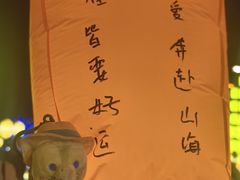 爱奔赴山海
皆要好运